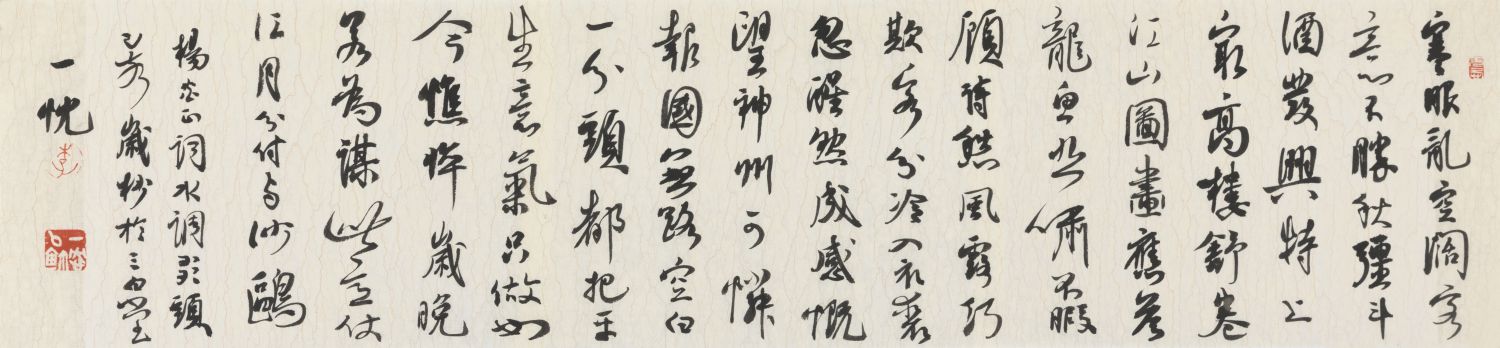 寒眼亂空闊客
意不勝秋彊斗
酒發興特上
最高樓舒卷
江山圖畫應答
龍魚悲嘯不暇
顧詩愁風露巧
欺客分冷入衣裘
忽醒然成感慨
望神州可憐
報國無路空白
一分頭都把平
生意氣只做如
今憔悴歲晚
若為謀此意仗
江月分付与沙鷗
楊炎正詞水調歌頭
己亥歲杪於三堂
一忱
李